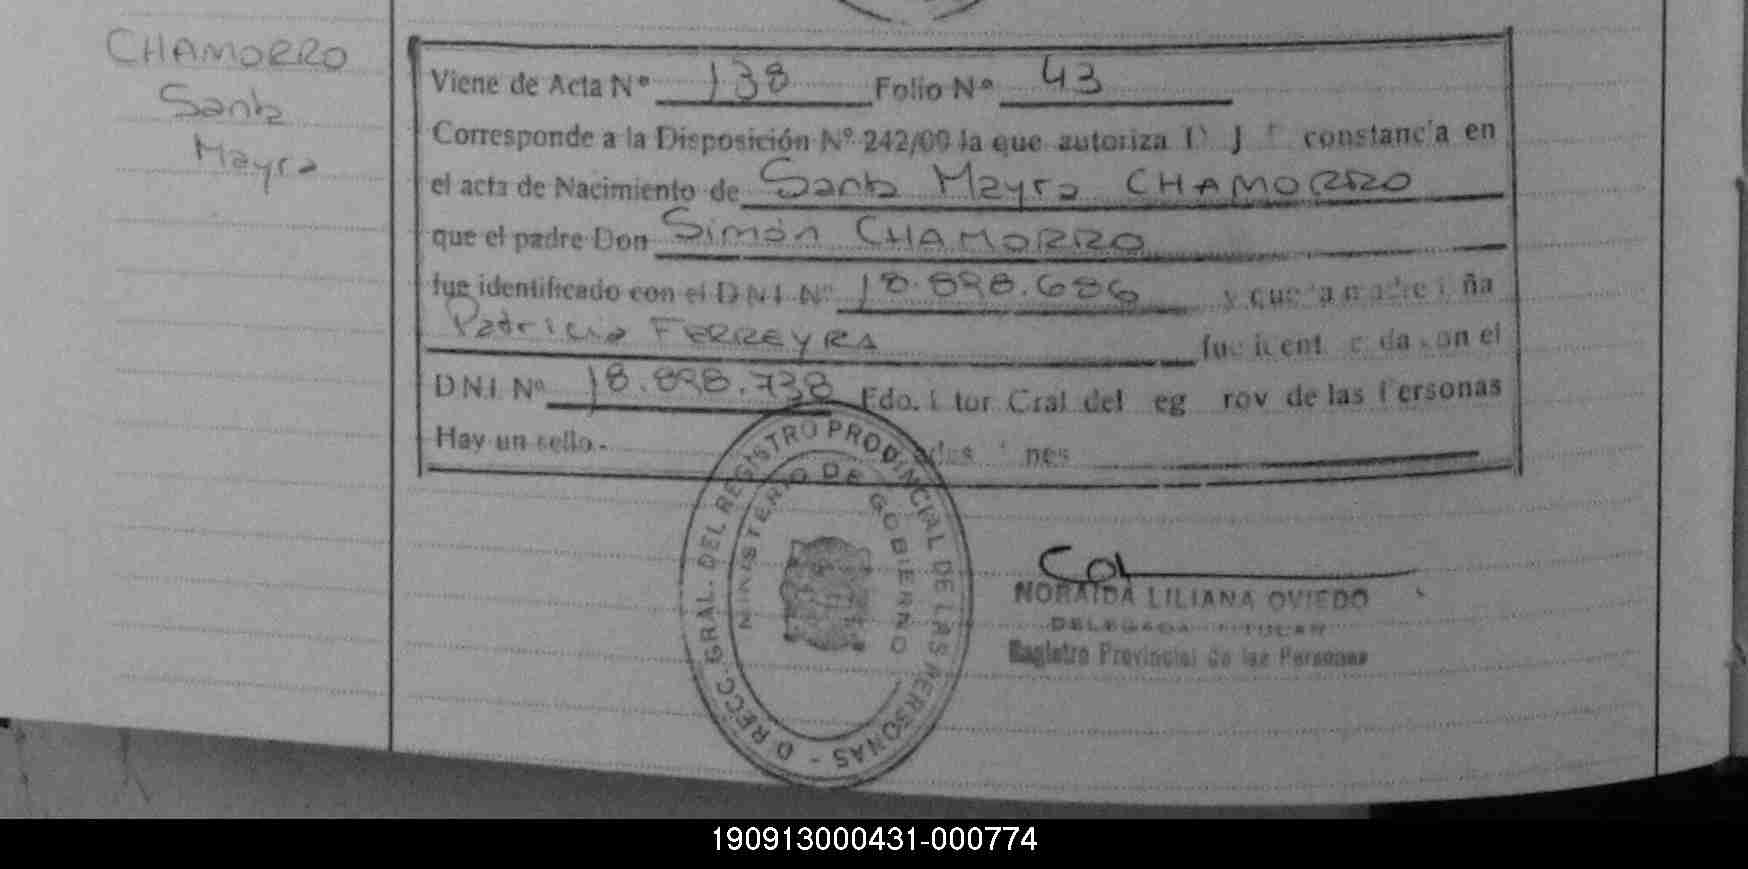 CHAMORRO
Santa
Mayra
Viene de Acta Nº 138 Folio Nº 43
Corresponde a la Disposición Nº 242/00 la que autoriza constancia en
el acta de Nacimiento de Santa Mayra CHAMORRO
que el padre Don Simón CHAMORRO
fue identificado con el D.N.I. Nº 18.898.686 y que la madre ña
Patricia FERREYRA fue con el
D.N.I. Nº 18.898.738 Fdo. Gral del de las Personas
Hay un sello.-
D RECC. GRAL. DEL REGISTRO PROVINCIAL DE LAS PERSONAS -
MINISTERIO DE GOBIERNO
NORAIDA LILIANA OVIEDO
DELEGADA TITULAR
Registro Provincial de las Personas
190913000431-000774